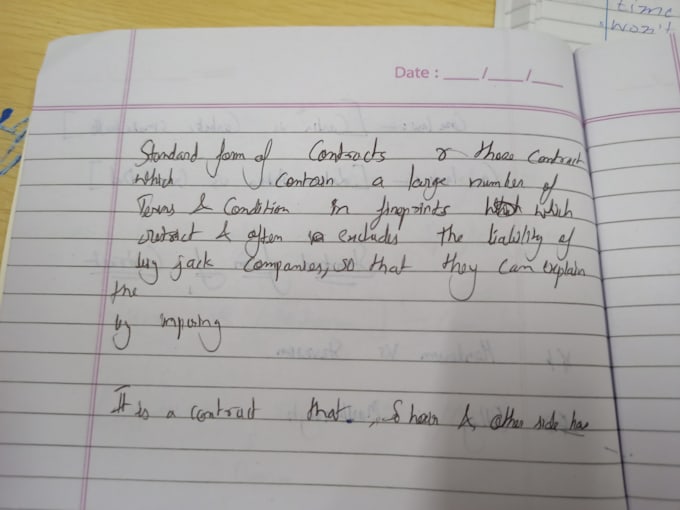 time
won't
Date : ___/___/___
Standard form of Contracts r those Contract
which contain a large number of
Terms & Condition in fineprints which
restrict & often excludes the liability of
big jack Companies, so that they can explain
the
by imposing
It is a contract that , & other side has